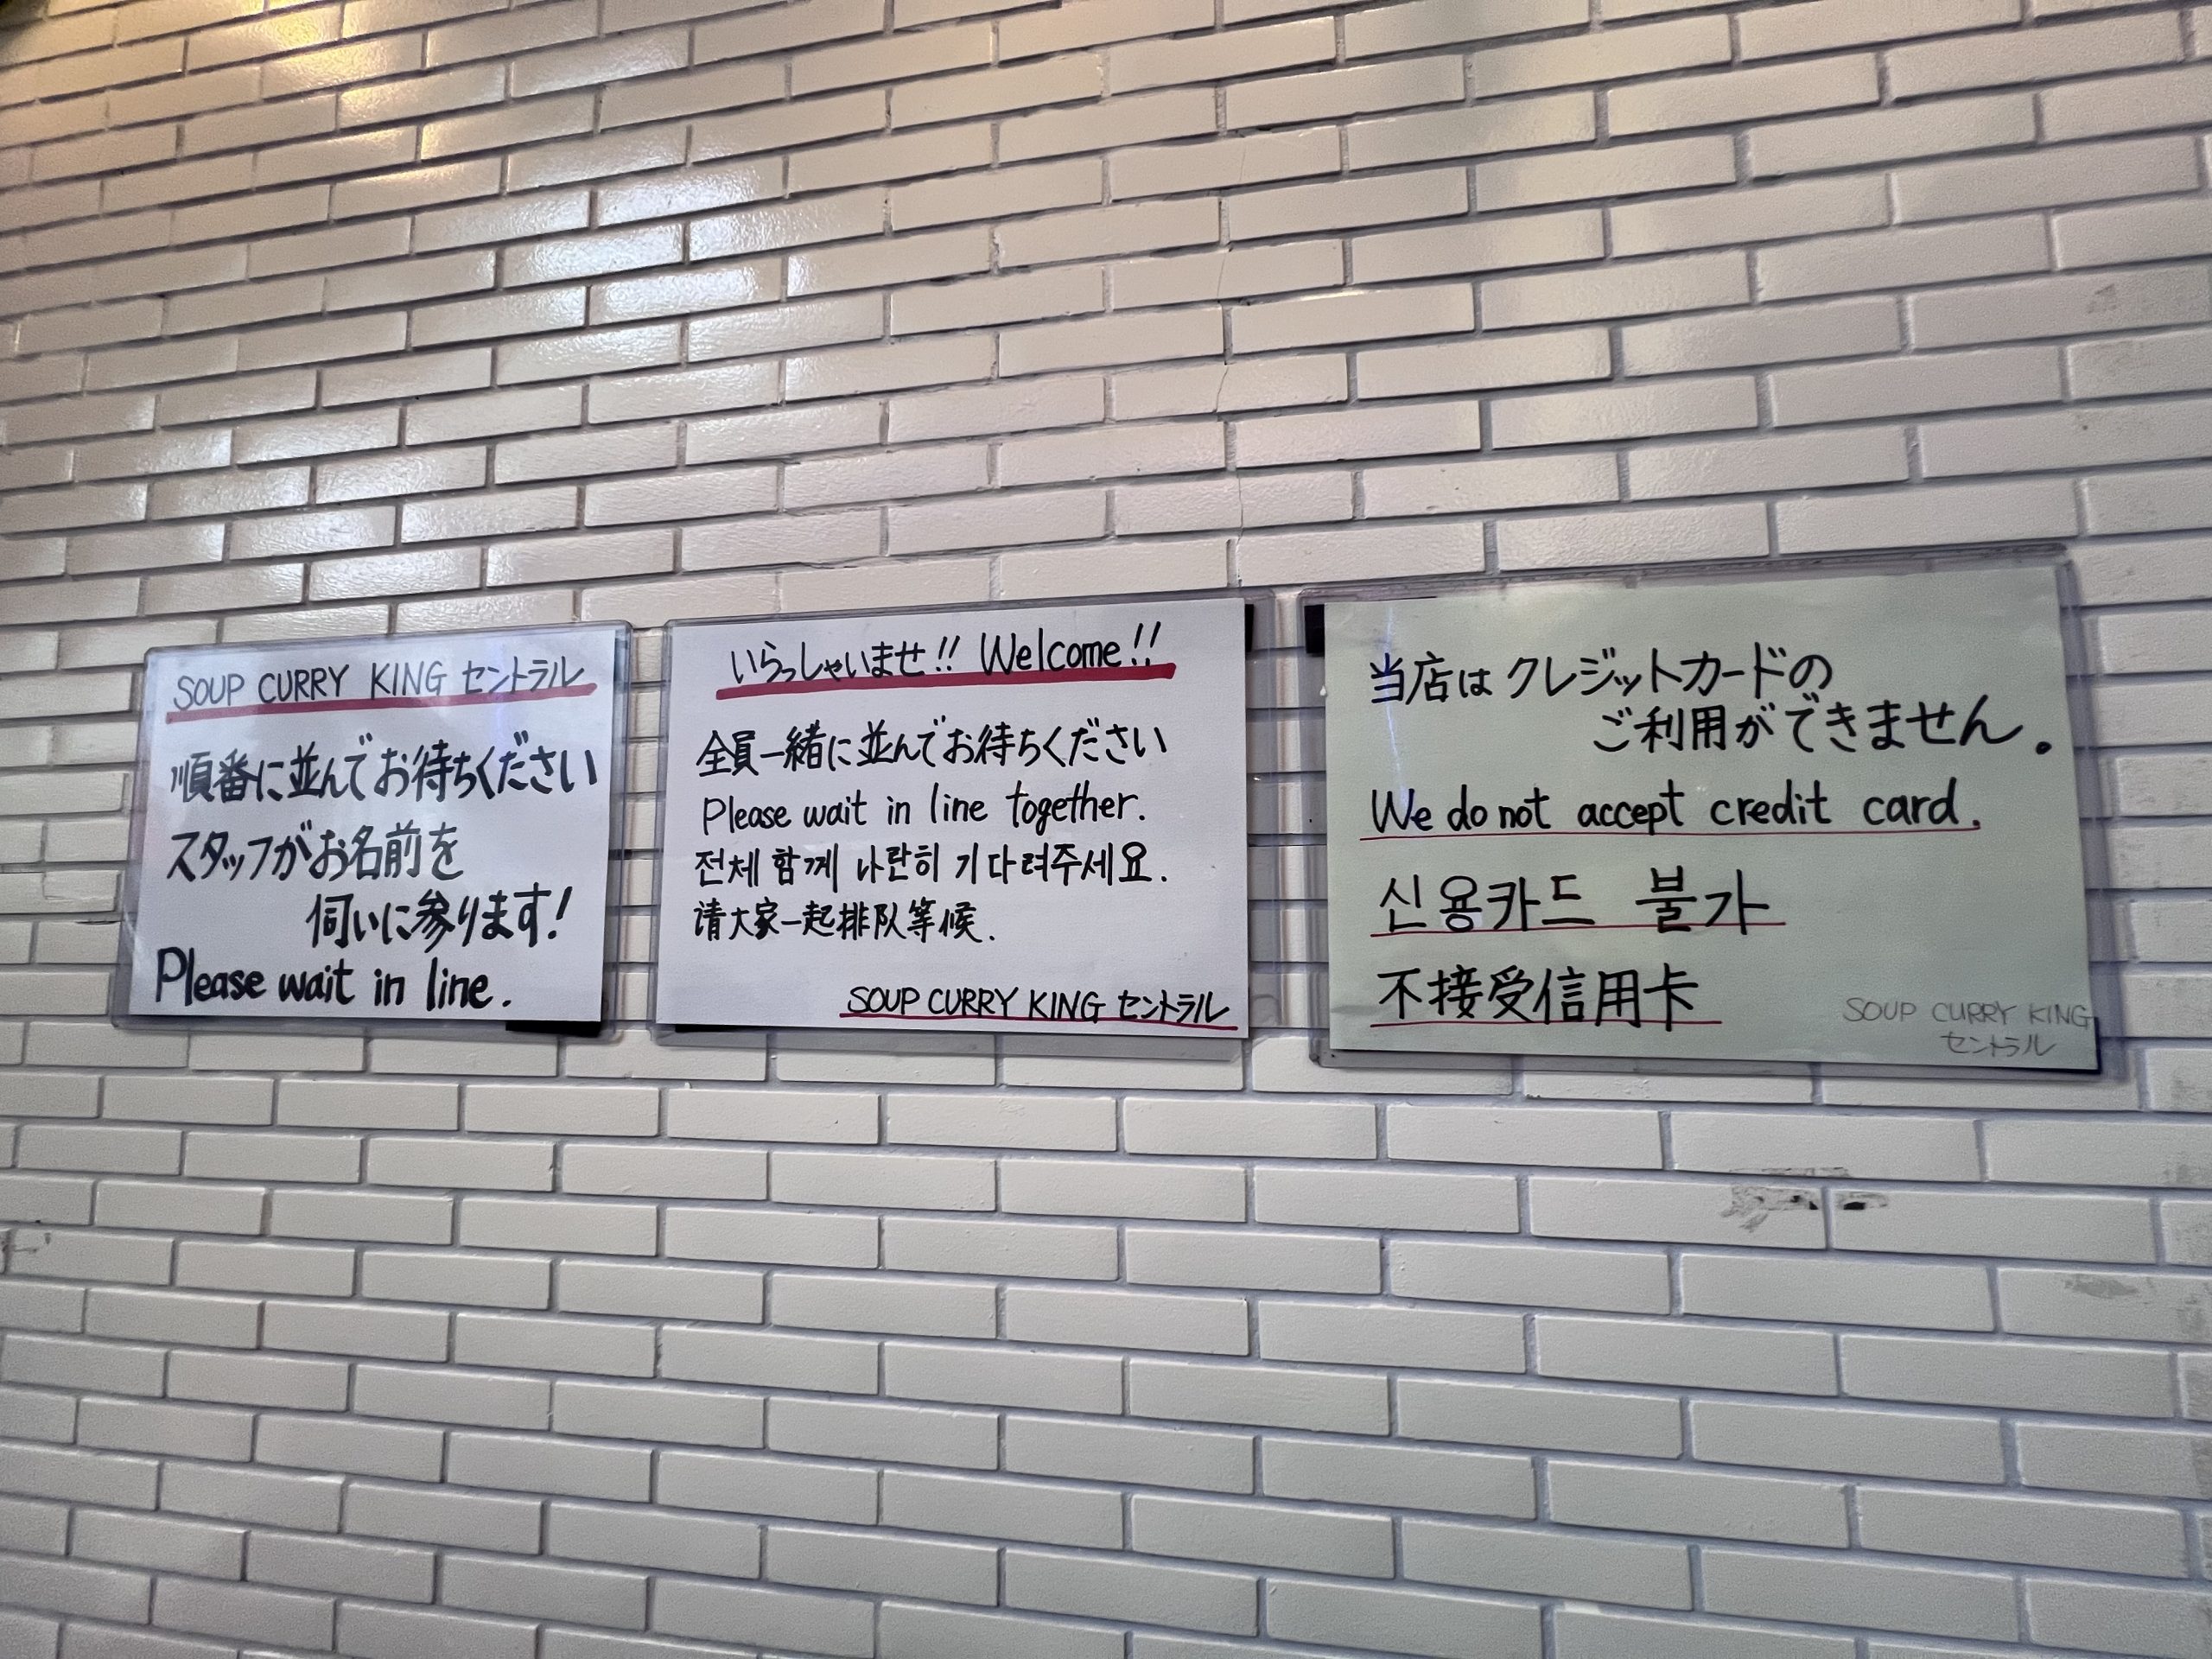 SOUP CURRY KING セントラル
順番に並んでお待ちください
スタッフがお名前を
伺いに参ります!
Please wait in line.
いらっしゃいませ!! Welcome!!
全員一緒に並んでお待ちください
Please wait in line together.
전체 함께 나란히 기다려주세요.
请大家一起排队等候.
SOUP CURRY KING セントラル
当店はクレジットカードの
ご利用ができません。
We do not accept credit card.
신용카드 불가
不接受信用卡
SOUP CURRY KING
セントラル